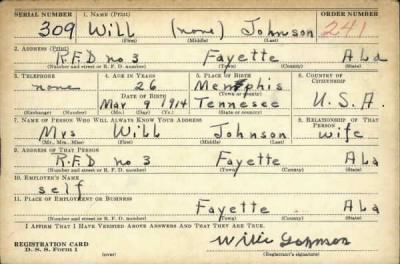 SERIAL NUMBER 1. NAME (Print) ORDER NUMBER
309 Will (none) Johnson 241
(First) (Middle) (Last)
2. ADDRESS (Print)
R.F.D no 3 Fayette Ala
(Number and street or R. F. D. number) (Town) (County) (State)
3. TELEPHONE 4. AGE IN YEARS 5. PLACE OF BIRTH 6. COUNTRY OF CITIZENSHIP
none 26 Memphis
DATE OF BIRTH (Town or county)
May 9 1914 Tennesee U.S.A.
(Exchange) (Number) (Mo.) (Day) (Yr.) (State or country)
7. NAME OF PERSON WHO WILL ALWAYS KNOW YOUR ADDRESS 8. RELATIONSHIP OF THAT PERSON
Mrs Will Johnson wife
(Mr., Mrs., Miss) (First) (Middle) (Last)
9. ADDRESS OF THAT PERSON
R.F.D no 3 Fayette Ala
(Number and street or R. F. D. number) (Town) (County) (State)
10. EMPLOYER'S NAME
self
11. PLACE OF EMPLOYMENT OR BUSINESS
Fayette Ala
(Number and street or R. F. D. number) (Town) (County) (State)
I AFFIRM THAT I HAVE VERIFIED ABOVE ANSWERS AND THAT THEY ARE TRUE.
REGISTRATION CARD
D. S. S. Form 1 (over) (Registrant's signature)
Willie Johnson